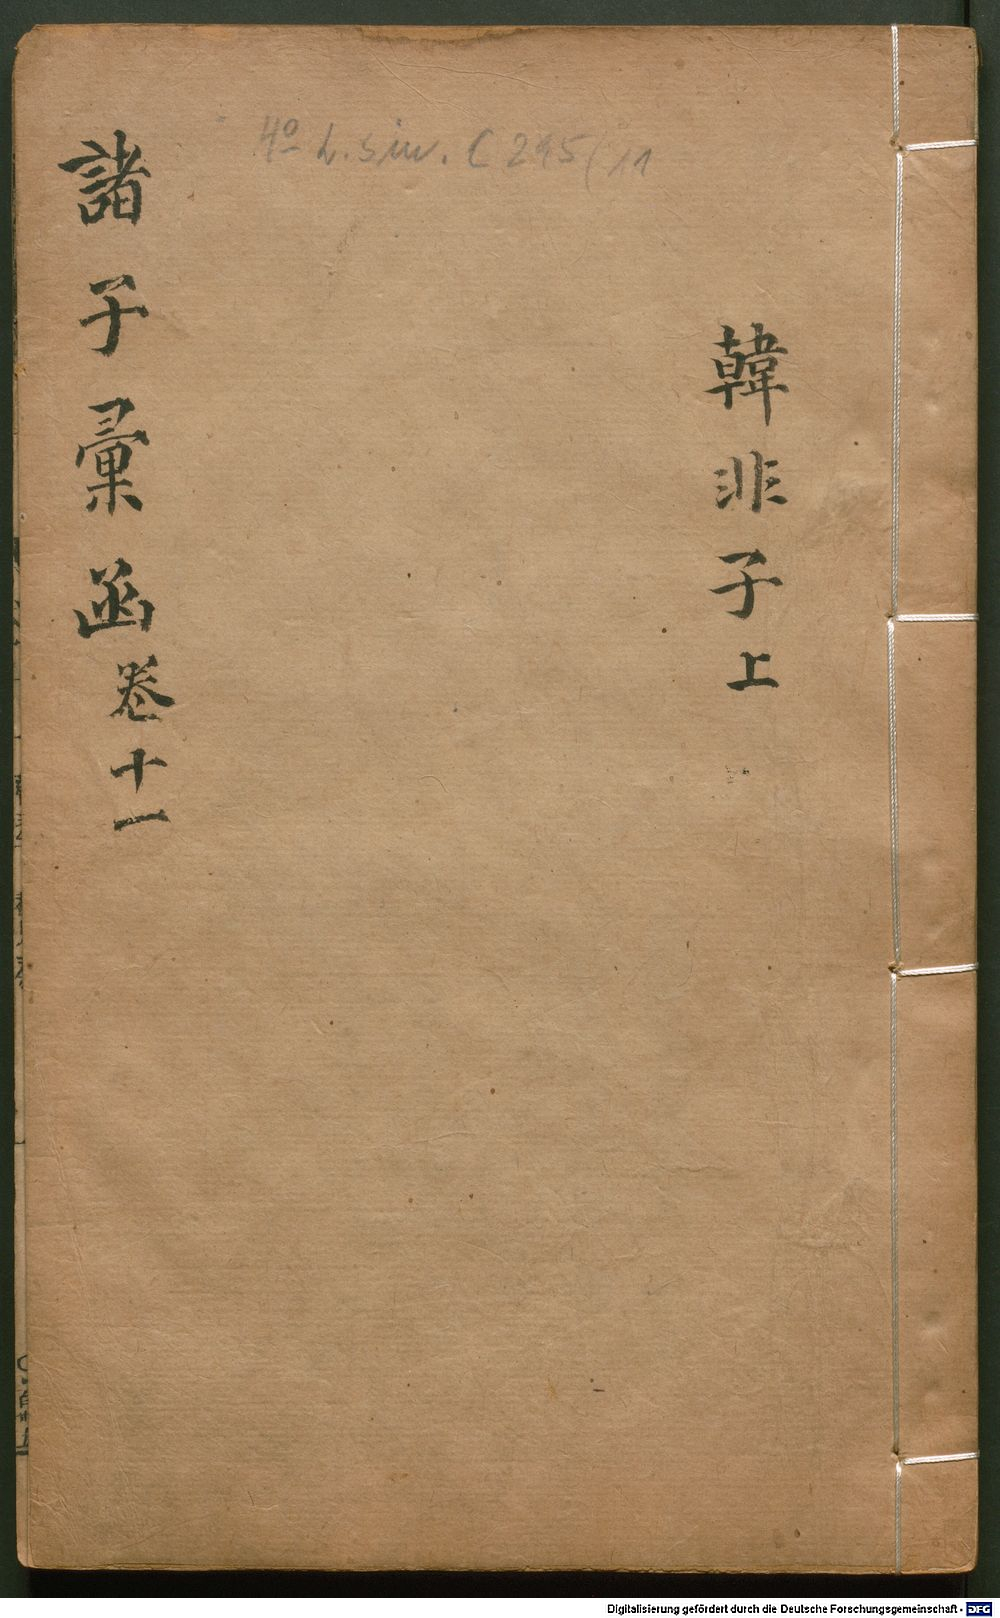 4º L. sin. C 295(11
韓非子上
諸子彙函卷十一
Digitalisierung gefördert durch die Deutsche Forschungsgemeinschaft - DFG